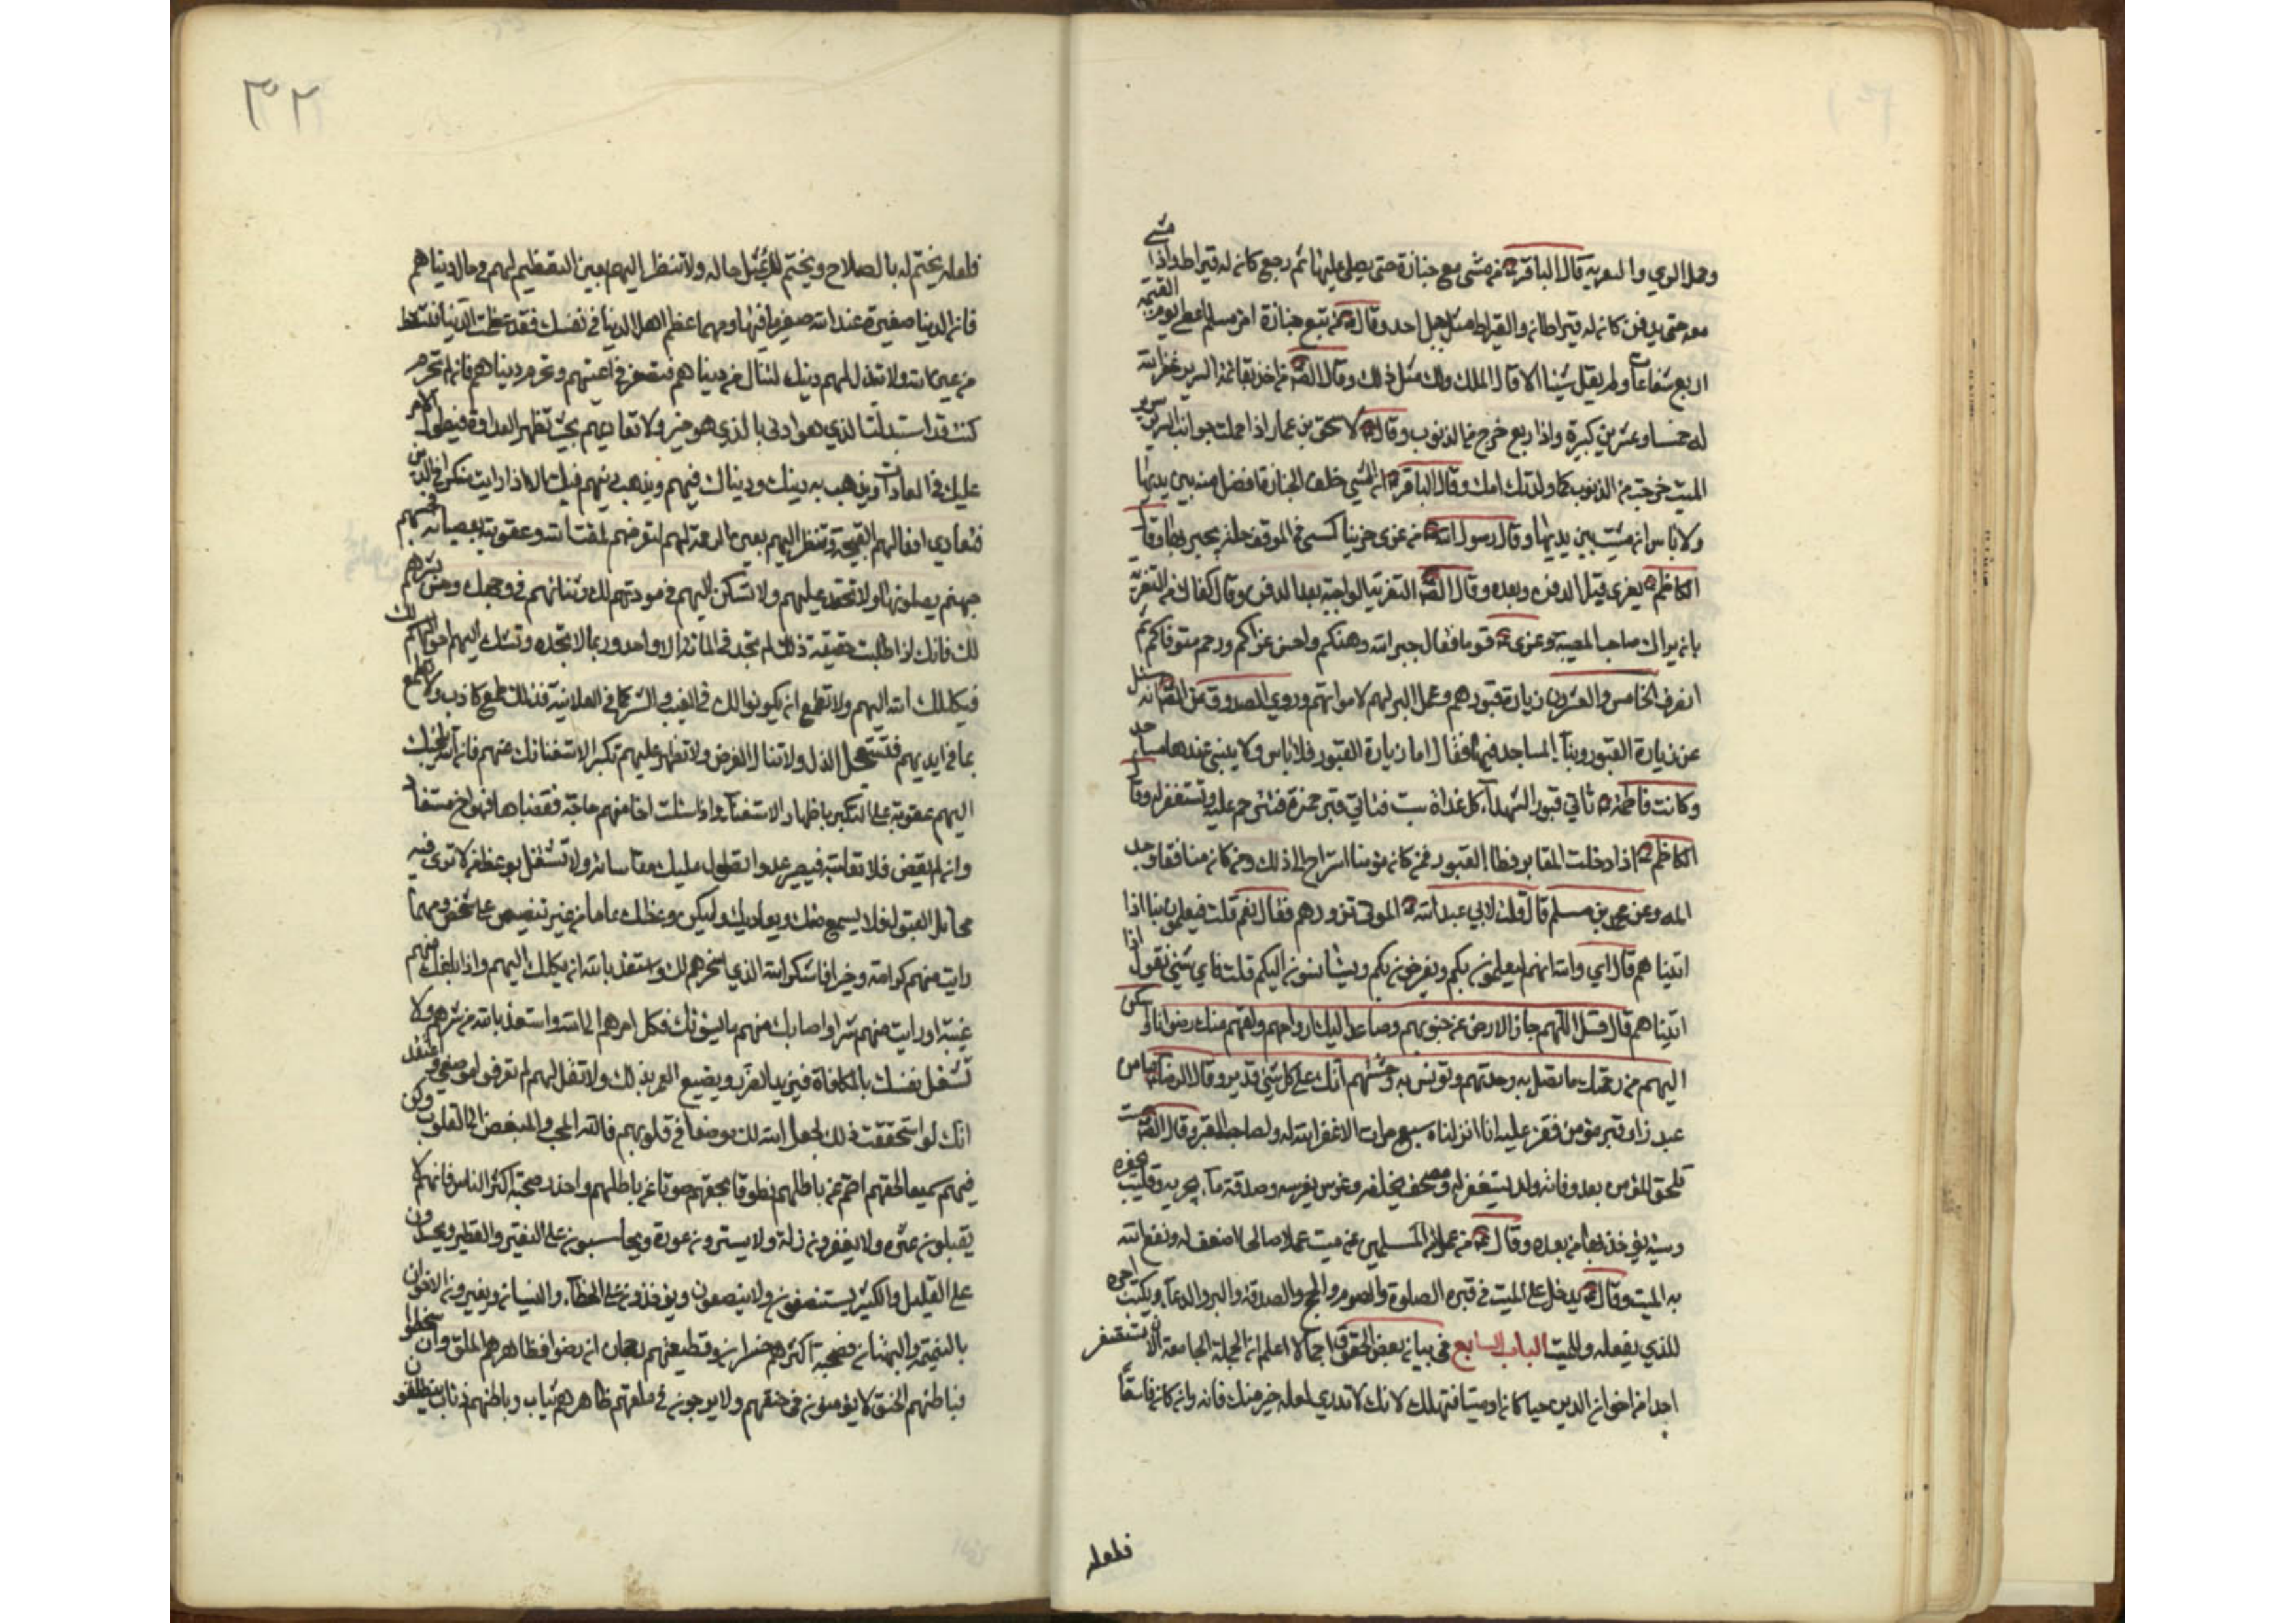 وحمل الوري والتعزية قال الباقر ع من مشى مع جنازة حتى يصلي عليها ثم رجع كان له قيراط واذا مشى
معه حتى يدفن كان له قيراطان والقيراط مثل جبل احد وقال ع من تبع جنازة امرء مسلم اعطي يوم القيمة
اربع شفاعات ولم يقل شيئا الا قال الملك ولك مثل ذلك وقال الصادق من اخذ بقائمة السرير غفر الله
له خمسا وعشرين كبيرة واذا ربع خرج من الذنوب وقال ع لاسحق بن عمار اذا حملت جوانب السرير سرير
الميت خرجت من الذنوب كما ولدتك امك وقال الباقر ع ان المشي خلف الجنازة افضل من بين يديها
ولا باس ان مشيت بين يديها وقال رسول الله ص من عزى حزينا كسي في الموقف حلة يحبر بها وقال
الكاظم ع يعزى قبل الدفن وبعده وقال الص التعزية الواجبة بعد الدفن وقال كفاك من التعزية
بان يراك صاحب المصيبة وعزى ع قوما فقال جبر الله وهنكم واحسن عزاكم ورحم متوفاكم ثم
انصرف الخامس والعشرون زيارة قبورهم وعمل البر لهم لامواتهم وروي الصدوق عن الص انه سئل
عن زيارة القبور وبناء المساجد فيها فقال اما زيارة القبور فلا باس ولا يبنى عندها مساجد
وكانت فاطمة ع تاتي قبور الشهدآء كل غداة سبت فتاتي قبر حمزة فتترحم عليه وتستغفر له وقال
الكاظم ع اذا دخلت المقابر فطا القبور فمن كان مؤمنا استراح الى ذلك ومن كان منافقا وجد
المه وعن محمد بن مسلم قال قلت لابي عبد الله ع الموتى تزورهم فقال نعم قلت فيعلمون بنا اذا
اتيناهم قال اي والله انهم ليعلمون بكم ويفرحون بكم ويستانسون اليكم قلت فاي شئ نقول اذا
اتيناهم قال قل اللهم جاف الارض عن جنوبهم وصاعد اليك ارواحهم ولقهم منك رضوانا واسكن
اليهم من رحمتك ما تصل به وحدتهم وتونس به وحشتهم انك على كل شئ قدير وقال الرضا ع ما من
عبد زار قبر مؤمن فقرء عليه انا انزلناه سبع مرات الا غفر الله له ولصاحب القبر وقال الص ست
تلحق المؤمن بعد وفاته ولد يستغفر له ومصحف يخلفه وغرس يغرسه وصدقة مآء يجريه وقليب يحفره
وسنة يؤخذ بها من بعده وقال ع من عمل من المسلمين عن ميت عملا صالحا اضعف له ونفع الله
به الميت وقال ع يدخل على الميت في قبره الصلوة والصوم والحج والصدقة والبر والدعآء ويكتب اجره
للذي يفعله وللميت الباب السابع في بيان بعض الحقوق اجمالا اعلم ان الجملة الجامعة ان لا تستصغر
احدا من اخوان الدين حيا كان او ميتا فتهلك لانك لا تدري لعله خير منك فانه وان كان فاسقا
فلعله
٣٢
فلعله يختم له بالصلاح ويختم لك بمثل حاله ولا تنظر اليهم بعين التعظيم لهم في حال دنياهم
فان الدنيا صغيرة عند الله صغير ما فيها ومهما عظم اهل الدنيا في نفسك فقد عظمت الدنيا فتسقط
من عين الله ولا تبذل لهم دينك لتنال من دنياهم فتصغر في اعينهم وتحرم دنياهم فان لم تحرم
كنت قد استبدلت الذي هو ادنى بالذي هو خير ولا تعاديهم بحيث تظهر العداوة فيطول الامر
عليك في المعادات ويذهب به دينك ودنياك فيهم ويذهب دينهم فيك الا اذا رايت منكرا في الدين
فتعادي افعالهم القبيحة وتنظر اليهم بعين الرحمة لهم لتعرضهم لمقت الله وعقوبته بعصيانه فحسبهم
جهنم يصلونها ولا تعتمد عليهم ولا تسكن اليهم في مودتهم لك وثنائهم في وجهك وحسن بشرهم
لك فانك ان طلبت حقيقة ذلك لم تجد في المائة الا واحد وربما لا تجده وتشك اليهم احوالك
فيكلك الله اليهم ولا تطمع ان يكونوا لك في الغيب والسر كما في العلانية فذلك طمع كاذب ولا تطمع
بما في ايديهم فتستعجل الذل ولا تنال الغرض ولا تعلو عليهم تكبرا لاستغنائك عنهم فان الله يلجئك
اليهم عقوبة على التكبر باظهار الاستغناء واذا سئلت اخا منهم حاجة فقضاها فهو اخ مستفاد
وان لم يقض فلا تعاتبه فيصير عدوا تطول عليك مقاساته ولا تشتغل بوعظ من لا ترى فيه
مخايل القبول فلا يسمع منك ويعاديك وليكن وعظك عاما من غير تنصيص على شخص ومهما
رايت منهم كرامة وخيرا فاشكر الله الذي سخرهم لك واستعذ بالله ان يكلك اليهم واذا بلغك منهم
غيبة او رايت منهم شرا او اصابك منهم ما يسوئك فكل امرهم الى الله واستعذ بالله من شرهم ولا
تشغل نفسك بالمكافاة فيزيد الضرر ويضيع العمر بذلك ولا تقل لهم لم تعرفوا موضعي واعتقد
انك لو استحققت ذلك لجعل الله لك موضعا في قلوبهم فالله المحب والمبغض الى القلوب وكن
فيهم سميعا لحقهم اصم عن باطلهم نطوقا بحقهم صموتا عن باطلهم واحذر صحبة اكثر الناس فانهم لا
يقيلون عثرة ولا يغفرون زلة ولا يسترون عورة ويحاسبون على النقير والقطمير ويحسدون
على القليل والكثير يستنصفون ولا ينصفون ويؤاخذون على الخطآء والنسيان ويغيرون الاخوان
بالنميمة والبهتان فصحبة اكثرهم خسران وقطيعتهم رجحان ان رضوا فظاهرهم الملق وان سخطوا
فباطنهم الحنق لا يؤمنون في حنقهم ولا يرجون في ملقهم ظاهرهم ثياب وباطنهم ذئاب يقطعون